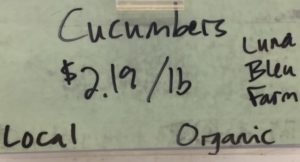 Cucumbers
$2.19/lb
Luna
Bleu
Farm
Local
Organic